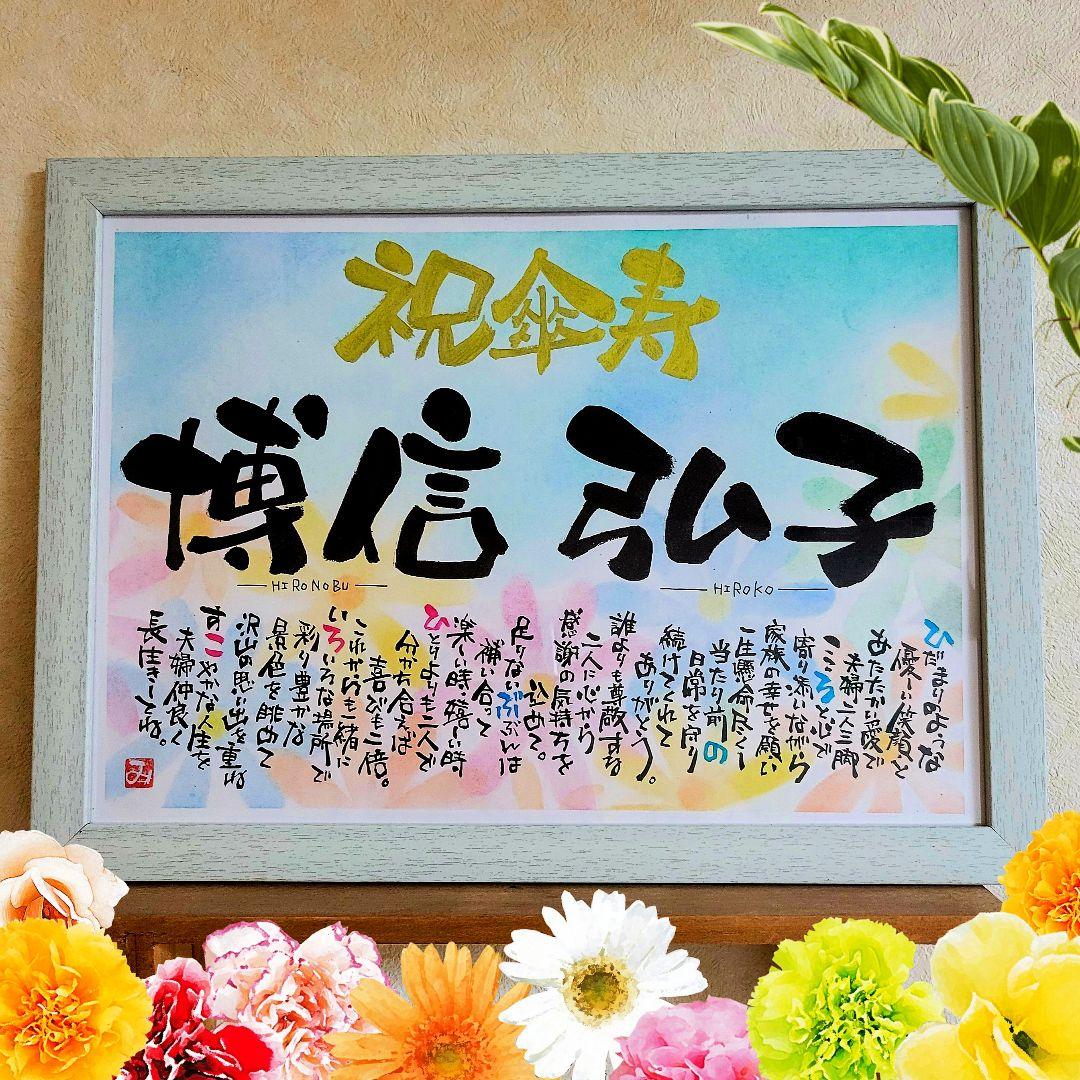 祝傘寿
博信 弘子
HIRONOBU
HIROKO
ひだまりのような
優しい笑顔と
あたたかい愛で
夫婦二人三脚
こころとこころで
寄り添いながら
家族の幸せを願い
一生懸命尽くし
当たり前の
日常を守り
続けてくれて
ありがとう。
誰よりも尊敬する
二人に心から
感謝の気持ちを
込めて。
足りないぶぶんは
補い合って
楽しい時嬉しい時
ひとりよりも二人で
分かち合えば
喜びも二倍。
これからも一緒に
いろいろな場所で
彩り豊かな
景色を眺めて
沢山の思い出を重ね
すこやかな人生を
夫婦仲良く
長生きしてね。